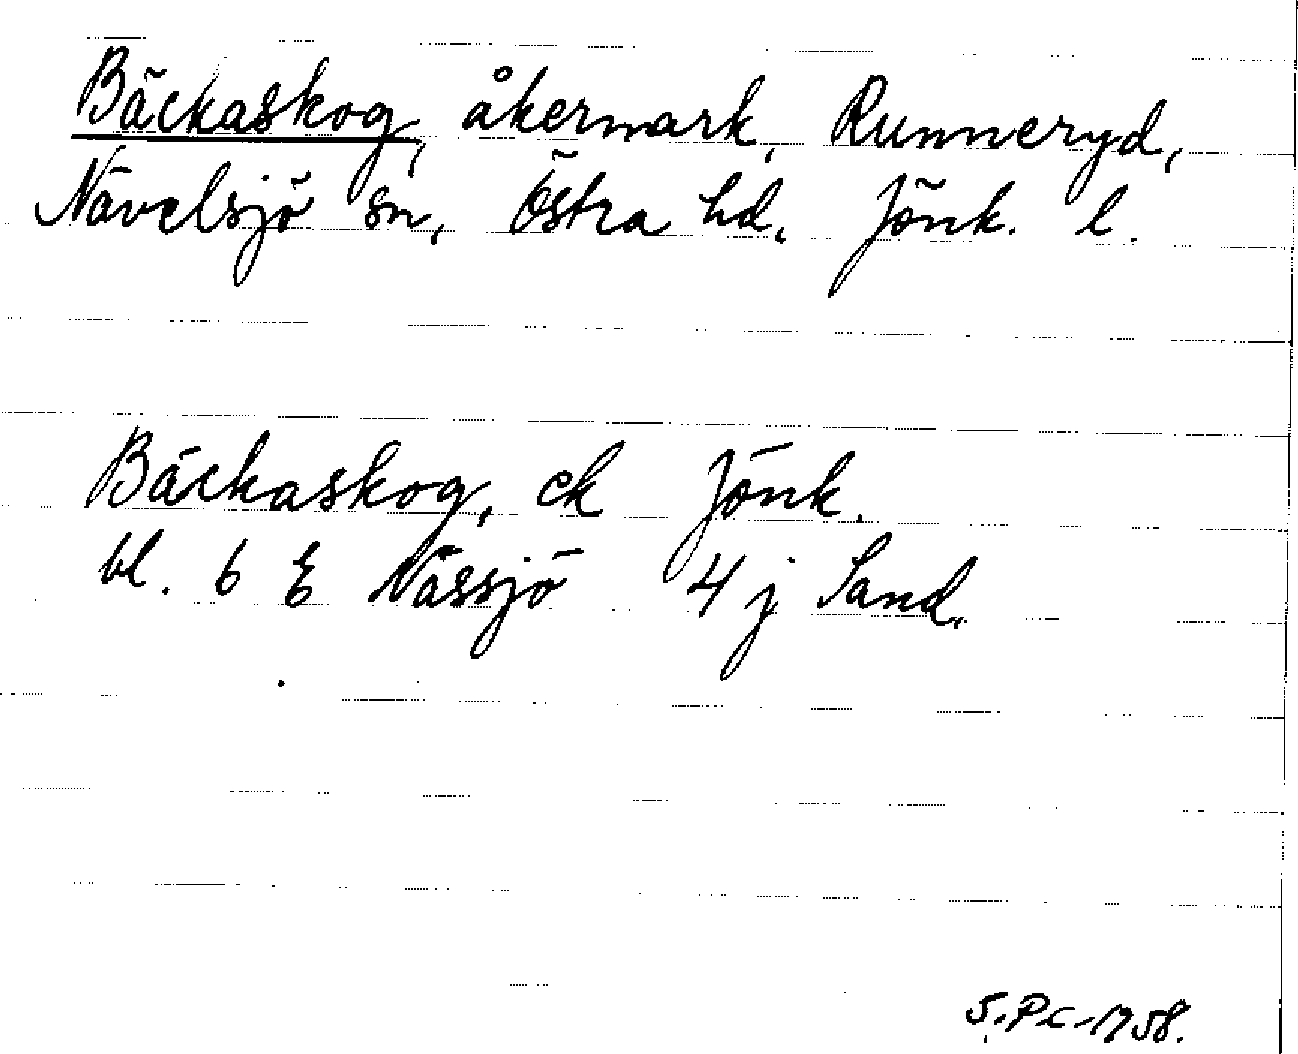 Bäckaskog, åkermark, Runneryd,
Nävelsjö sn, Östra hd, Jönk. l.
Bäckaskog, ek Jönk.
bl. 6 E Nässjö 4 j Sand.
1958.